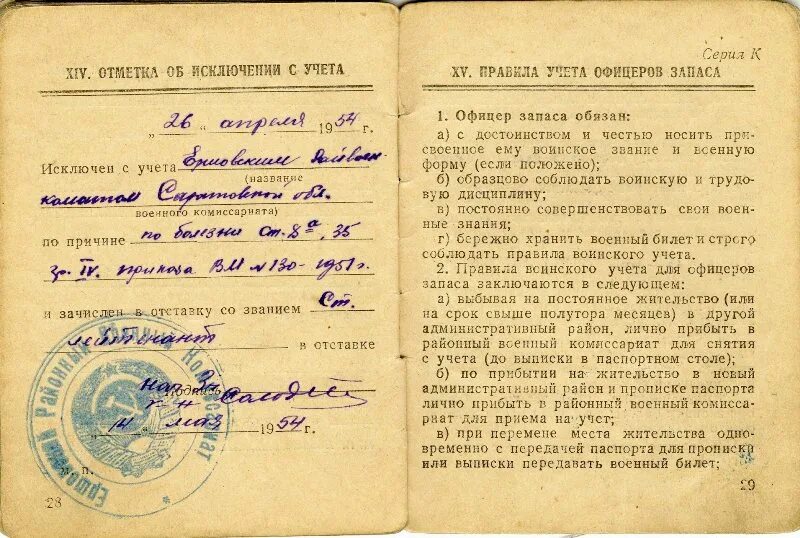 XIV. ОТМЕТКА ОБ ИСКЛЮЧЕНИИ С УЧЕТА
„ 26 “ апреля 1954 г.
Исключен с учета Ершовским Райвоен-
(название
коматом Саратовской обл.
военного комиссариата)
по причине по болезни ст. 8а, 35
гр. IV. приказа ВМ №130-1951г.
и зачислен в отставку со званием Ст.
лейтенант в отставке
Подпись
„ 14 “ мая 1954 г.
м. п.
Ершовский Районный Военный Комиссариат
28
Серия К
XV. ПРАВИЛА УЧЕТА ОФИЦЕРОВ ЗАПАСА
1. Офицер запаса обязан:
а) с достоинством и честью носить при-
своенное ему воинское звание и военную
форму (если положено);
б) образцово соблюдать воинскую и трудо-
вую дисциплину;
в) постоянно совершенствовать свои воен-
ные знания;
г) бережно хранить военный билет и строго
соблюдать правила воинского учета.
2. Правила воинского учета для офицеров
запаса заключаются в следующем:
а) выбывая на постоянное жительство (или
на срок свыше полутора месяцев) в другой
административный район, лично прибыть в
районный военный комиссариат для снятия
с учета (до выписки в паспортном столе);
б) по прибытии на жительство в новый
административный район и прописке паспорта
лично прибыть в районный военный комисса-
риат для приема на учет;
в) при перемене места жительства одно-
временно с передачей паспорта для прописки
или выписки передавать военный билет;
29